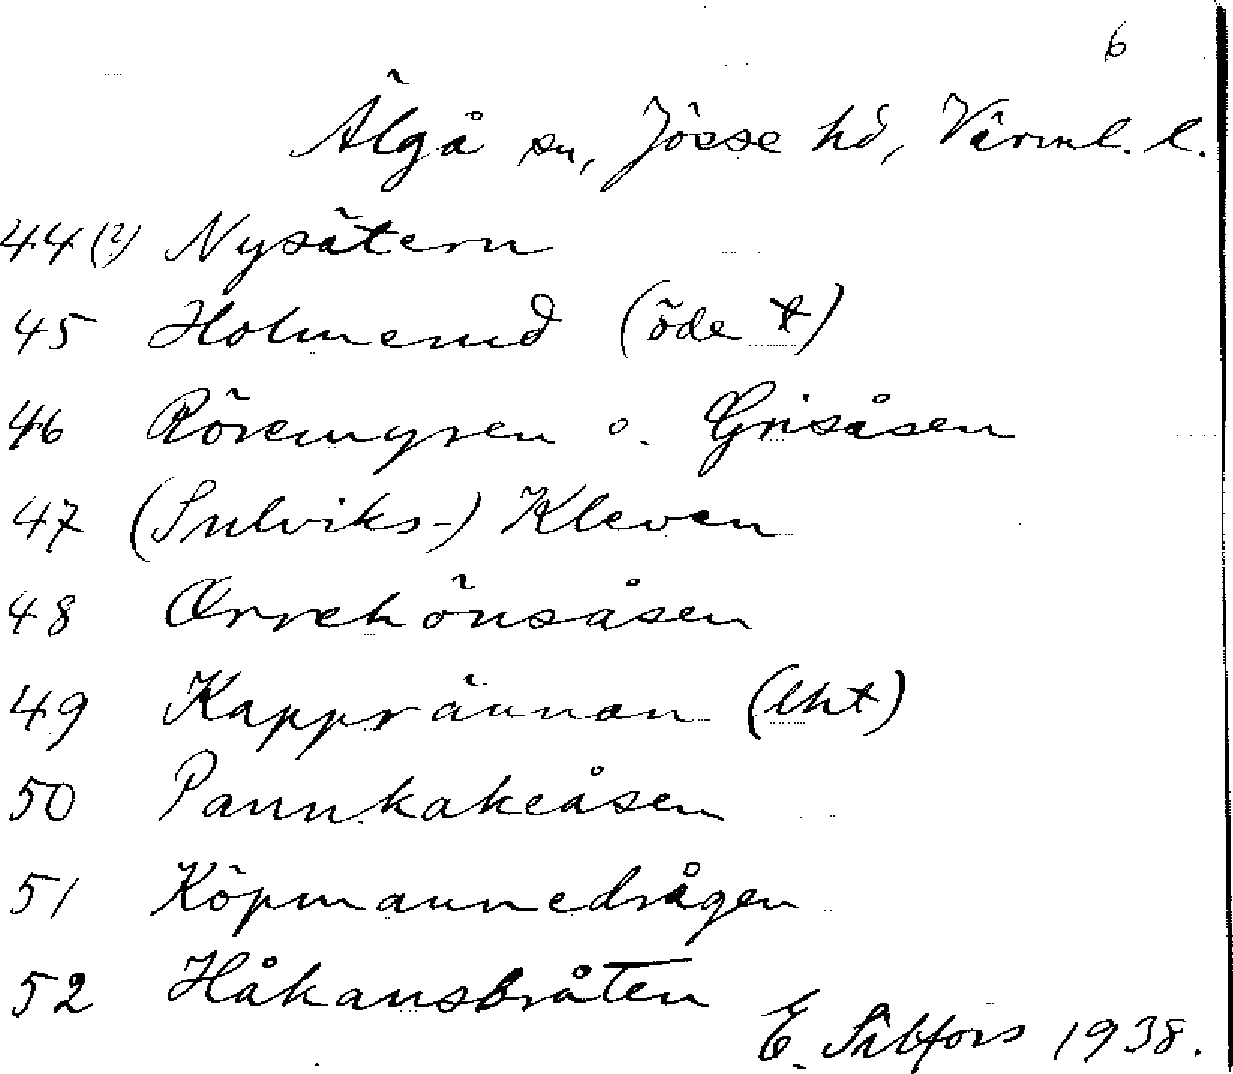 6
Älgå sn, Jösse hd, Värml. l.
44(?) Nysätern
45 Holmerud (öde t)
46 Röremyren o. Grisåsen
47 (Sulviks-) Kleven
48 Orrehönsåsen
49 Kapprännan (lht)
50 Pannkakeåsen
51 Köpmannedrågen
52 Håkansbråten
E. Sälfors 1938.